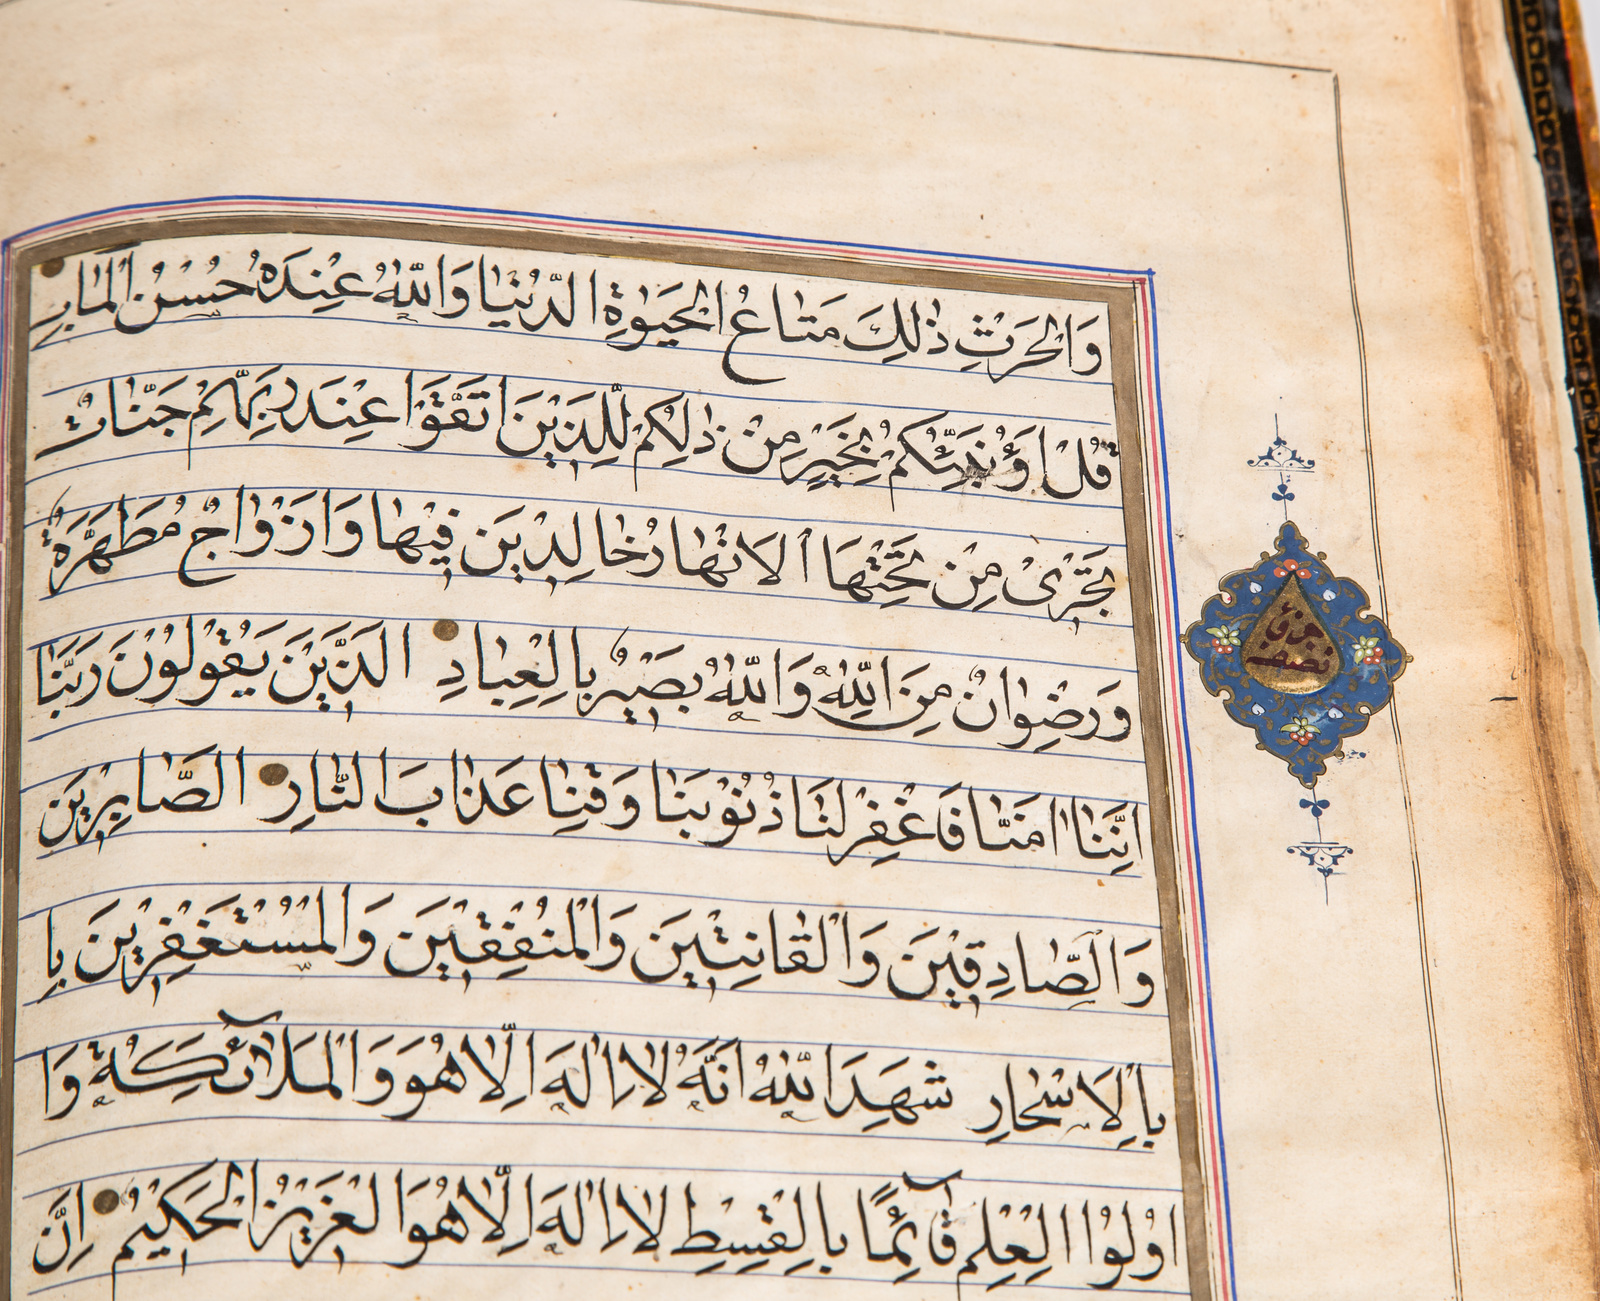 وَالْحَرْثِ ذٰلِكَ مَتَاعُ الْحَيٰوةِ الدُّنْيَا وَاللّٰهُ عِنْدَهُ حُسْنُ الْمَاٰبِ
قُلْ اَؤُنَبِّئُكُمْ بِخَيْرٍ مِنْ ذٰلِكُمْ لِلَّذِيْنَ اتَّقَوْا عِنْدَ رَبِّهِمْ جَنَّاتٌ
تَجْرِيْ مِنْ تَحْتِهَا الْاَنْهَارُ خَالِدِيْنَ فِيْهَا وَاَزْوَاجٌ مُطَهَّرَةٌ
وَرِضْوَانٌ مِنَ اللّٰهِ وَاللّٰهُ بَصِيْرٌ بِالْعِبَادِ الَّذِيْنَ يَقُوْلُوْنَ رَبَّنَا
اِنَّنَا اٰمَنَّا فَاغْفِرْ لَنَا ذُنُوْبَنَا وَقِنَا عَذَابَ النَّارِ الصَّابِرِيْنَ
وَالصَّادِقِيْنَ وَالْقَانِتِيْنَ وَالْمُنْفِقِيْنَ وَالْمُسْتَغْفِرِيْنَ بِا
بِالْاَسْحَارِ شَهِدَ اللّٰهُ اَنَّهُ لَا اِلٰهَ اِلَّا هُوَ وَالْمَلَآئِكَةُ وَا
اُولُوا الْعِلْمِ قَآئِمًا بِالْقِسْطِ لَا اِلٰهَ اِلَّا هُوَ الْعَزِيْزُ الْحَكِيْمُ اِنَّ
نصف